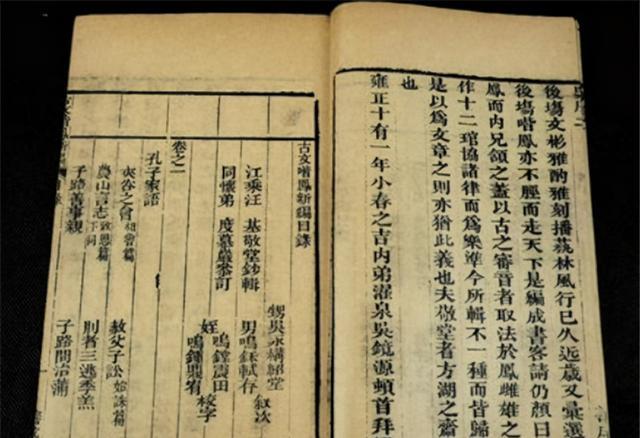 後塲文彬雅酌雅刻播蓺林風行已久近歲又彙選
後塲喈鳳亦不脛而走天下是編成書客請仍顏曰
鳳而內兄頷之蓋以古之審音者取法於鳳雌雄之
作十二琯協諸律而爲樂準今所輯不一種而皆歸
是以爲文章之則亦猶此義也夫敬堂者方湖之齋
也
雍正十有一年小春之吉內弟濯泉吳鏡源頓首拜
古文喈鳳新編目錄
甥吳永
江乘汪 基敬堂鈔輯 男鳴銶軾存 叙次
同懷弟 度墓巖叅訂 姪鳴鏜震田 校字
鳴鐘鼎宥
卷之一
孔子家語
夾谷之會 相魯篇 赦父子訟 始誅篇
農山言志 致思篇下同 刖者三逃季羔
子路善事親 子路問治蒲